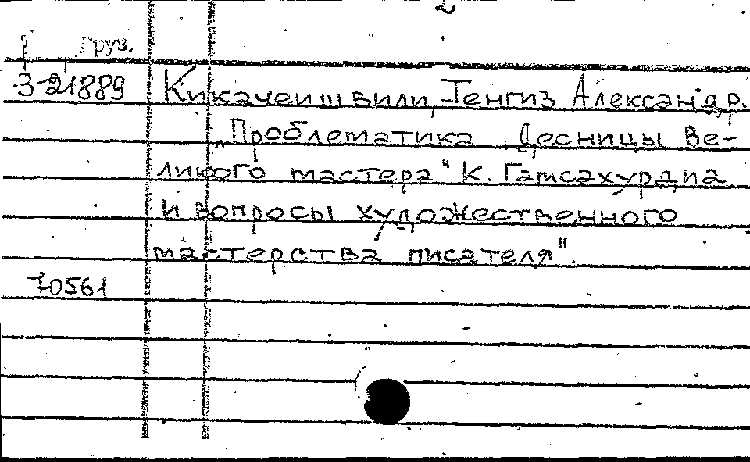 2
груз.
3-21889 Кикачеишвили, Тенгиз Александр.
„Проблематика „Десницы Ве-
ликого мастера" К. Гамсахурдиа
и вопросы художественного
мастерства писателя".
70561